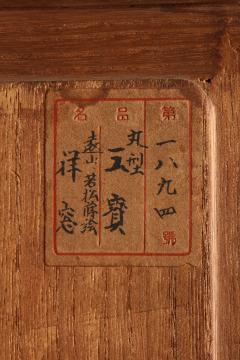 第一八九四號
品名
丸型
五寳
遠山若松蒔絵
祥窓